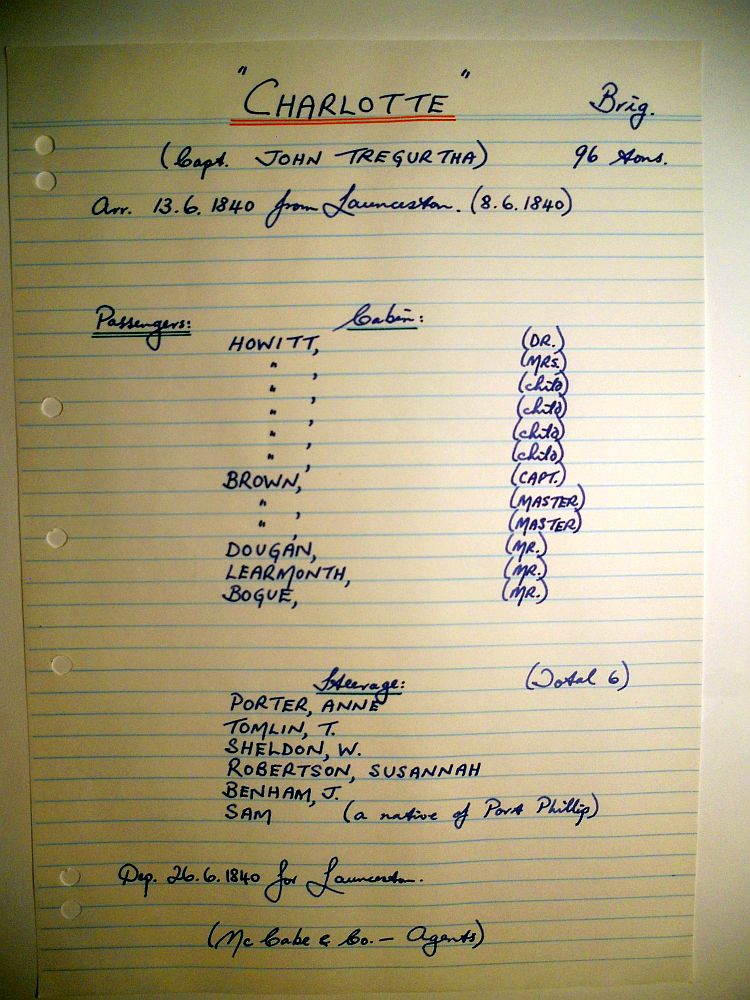 "CHARLOTTE" Brig.
(Capt. JOHN TREGURTHA) 96 tons.
Arr. 13.6.1840 from Launceston. (8.6.1840)
Passengers: Cabin:
HOWITT, (DR.)
" , (MRS.)
" , (child)
" , (child)
" , (child)
" , (child)
BROWN, (CAPT.)
" , (MASTER)
" , (MASTER)
DOUGAN, (MR.)
LEARMONTH, (MR.)
BOGUE, (MR.)
Steerage: (Total 6)
PORTER, ANNE
TOMLIN, T.
SHELDON, W.
ROBERTSON, SUSANNAH
BENHAM, J.
SAM (a native of Port Phillip)
Dep. 26.6.1840 for Launceston.
(McCabe & Co. – Agents)